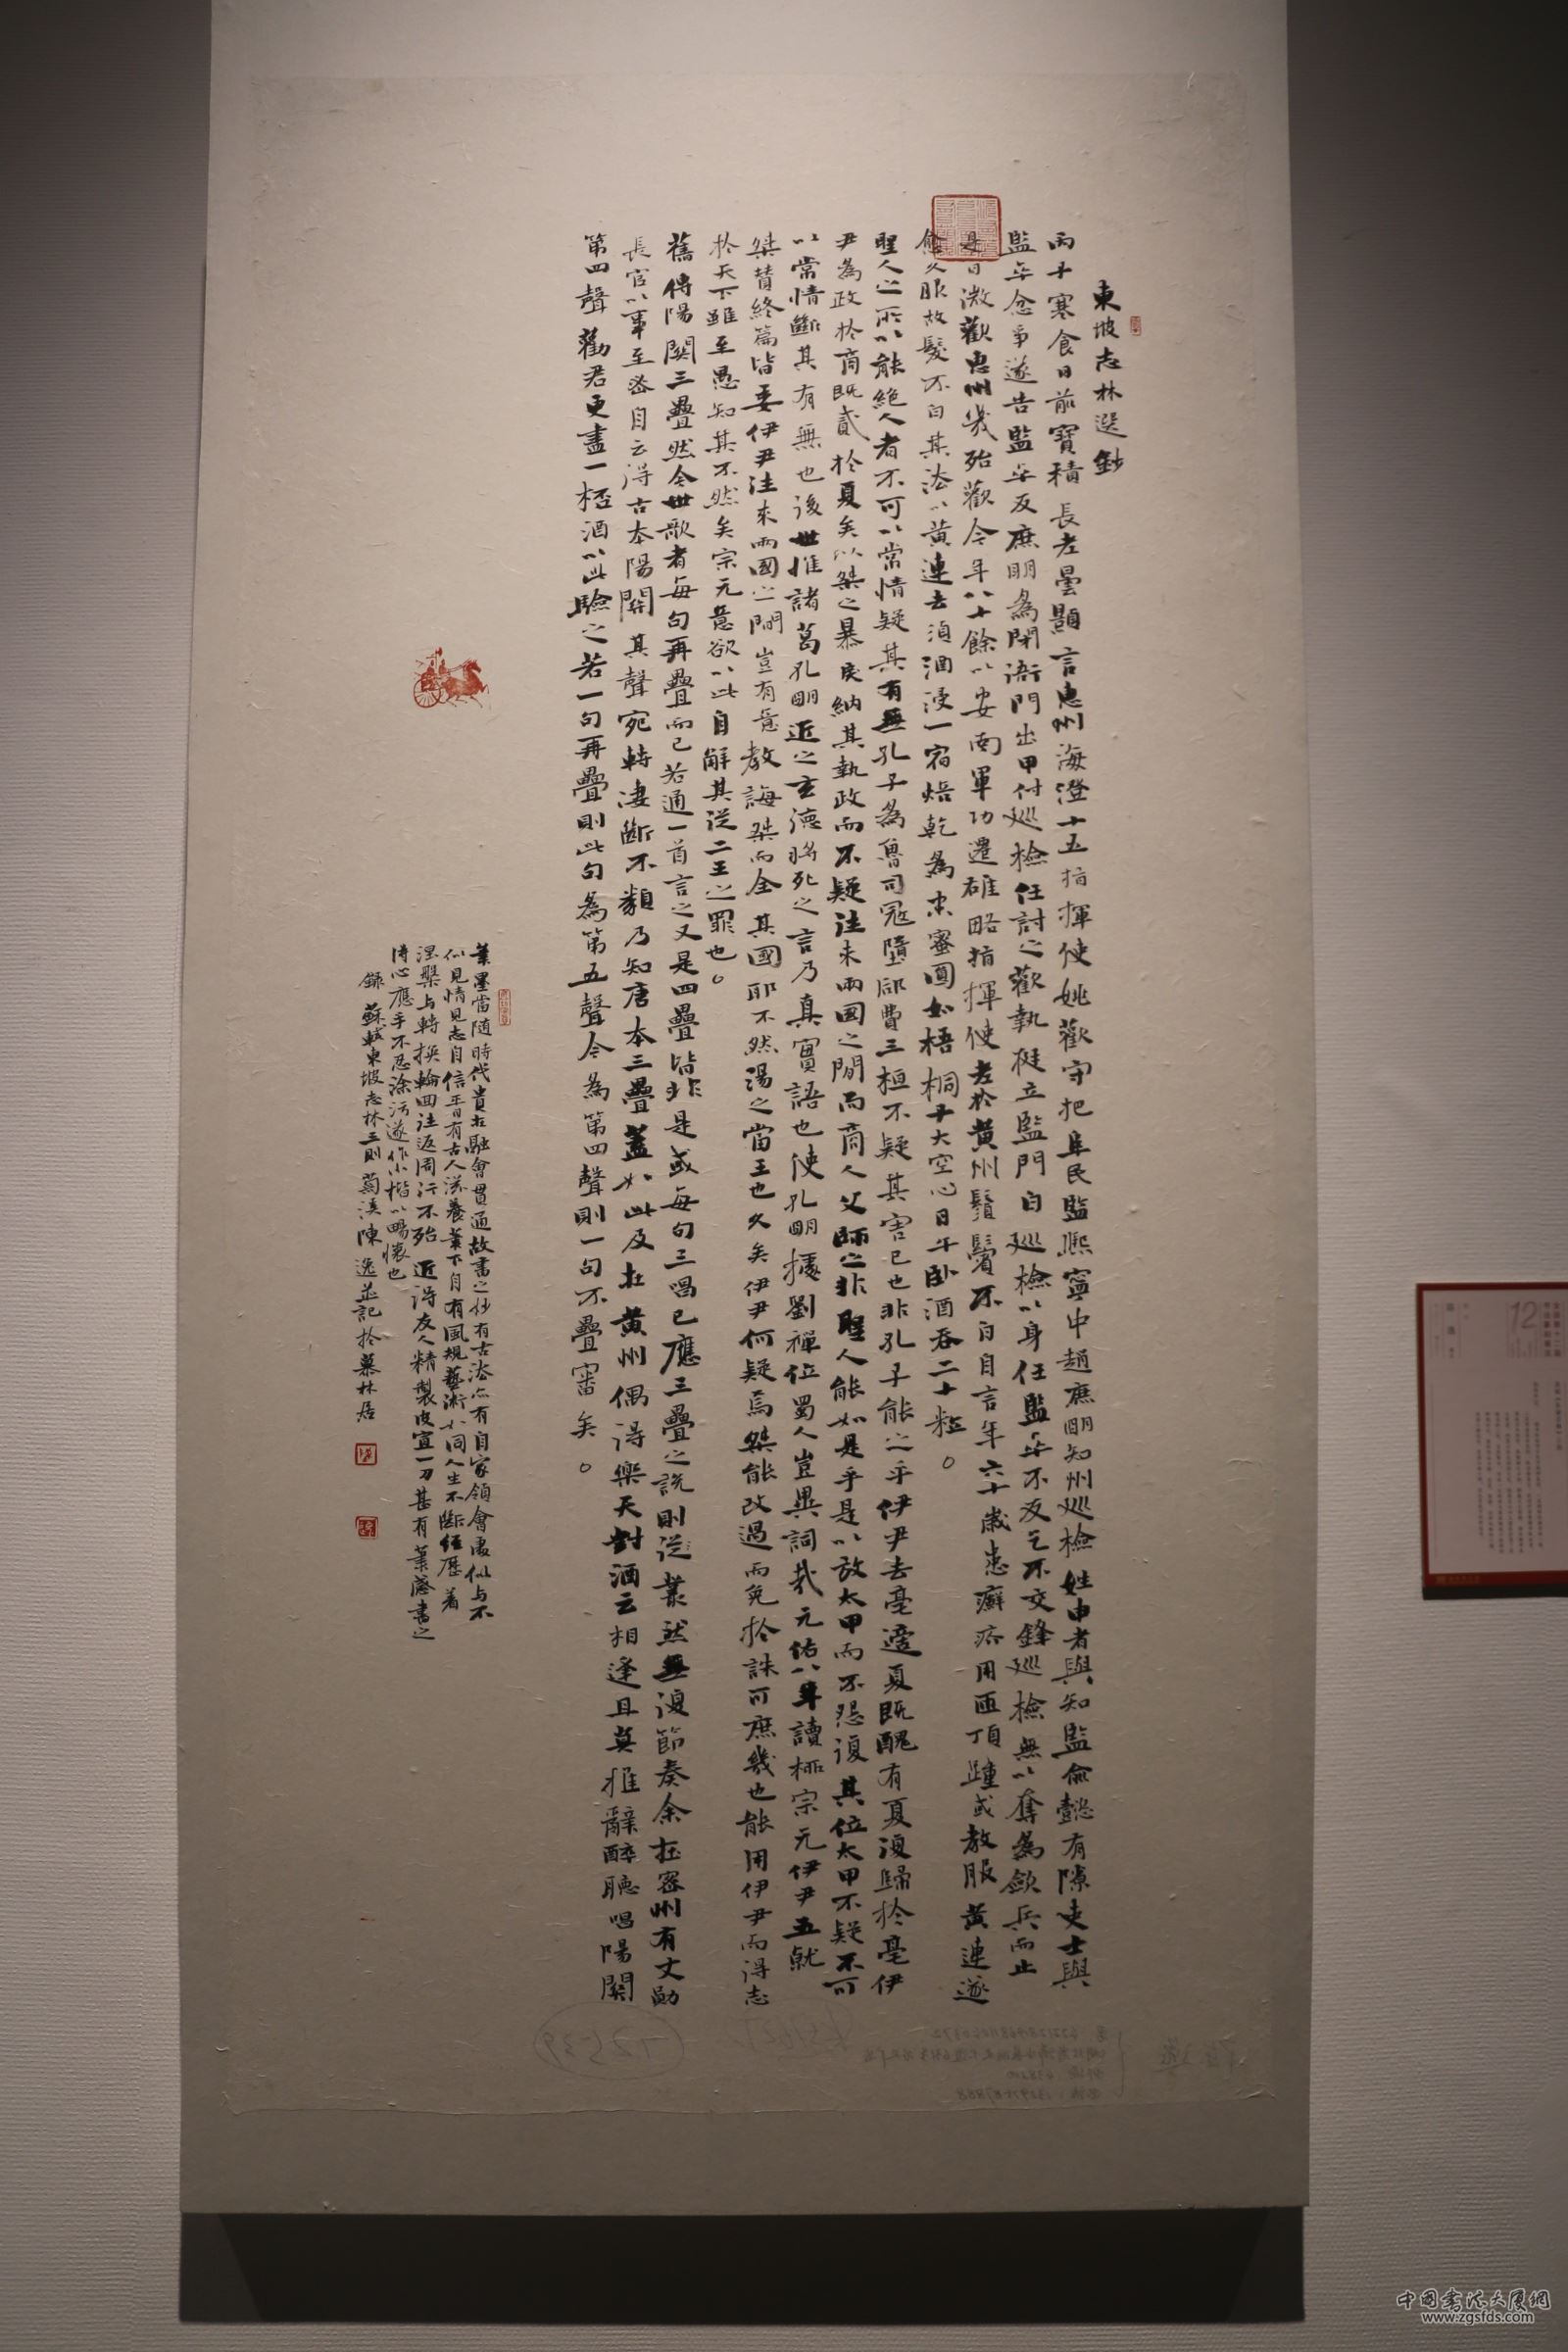 東坡志林選鈔
丙子寒食日前寶積長老曇顯言惠州海澄十五指揮使姚歡守把阜民監熙寧中趙庶明知州巡檢姓申者與知監俞懿有隙吏士與
監卒忿爭遂告監卒反庶明為閉衙門出甲付巡檢往討之歡執梃立監門白巡檢以身任監卒不反乞不交鋒巡檢無以奪為斂兵而止
是日微歡惠州幾殆歡今年八十餘以安南軍功遷雄略指揮使老於黃州鬚鬢不白自言年六十歲患癬疥周匝頂踵或教服黃連遂
愈久服故髮不白其法以黃連去須酒浸一宿焙乾為末蜜圓如梧桐子大空心日午臥酒吞二十粒。
聖人之所以能絕人者不可以常情疑其有無孔子為魯司寇墮郈費三桓不疑其害己也非孔子能之乎伊尹去亳適夏既醜有夏復歸於亳伊
尹為政於商既貳於夏矣以桀之暴戾納其執政而不疑往來兩國之間而商人父師之非聖人能如是乎是以放太甲而不怨復其位太甲不疑不可
以常情斷其有無也後世惟諸葛孔明近之玄德將死之言乃真實語也使孔明據劉禪位蜀人豈異詞哉元佑八年讀柳宗元伊尹五就
桀贊終篇皆妄伊尹往來兩國之間豈有意教誨桀而全其國耶不然湯之當王也久矣伊尹何疑焉桀能改過而免於誅可庶幾也能用伊尹而得志
於天下雖至愚知其不然矣宗元意欲以此自解其從二王之罪也。
舊傳陽關三疊然今世歌者每句再疊而已若通一首言之又是四疊皆非是或每句三唱已應三疊之說則從叢然無復節奏余在密州有文勛
長官以事至密自云得古本陽關其聲宛轉淒斷不類乃知唐本三疊蓋如此及在黃州偶得樂天對酒云相逢且莫推辭醉聽唱陽關
第四聲勸君更盡一杯酒以此驗之若一句再疊則此句為第五聲今為第四聲則一句不疊審矣。
筆墨當隨時代貴在融會貫通故書之妙有古法亦有自家領會處似与不
似見情見志自信平日有古人滋養筆下自有風規藝術如同人生不斷經歷着
涅槃与轉換輪回往返周行不殆近得友人精製皮宣一刀甚有筆感書之
得心應手不忍涂污遂作小楷以暢懷也
錄蘇軾東坡志林三則蔔溪陳逸並記於慕林居
12
中国书法大厦網
www.zgsfds.com